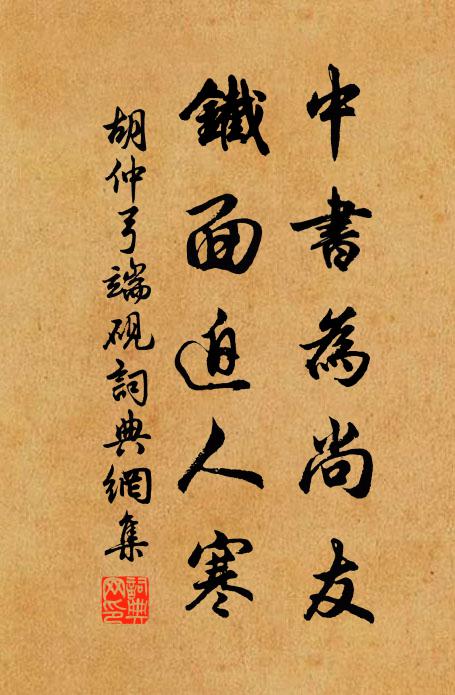 中書為尚友
鐵面迫人寒
胡仲弓端硯詞典網集
詞典网印